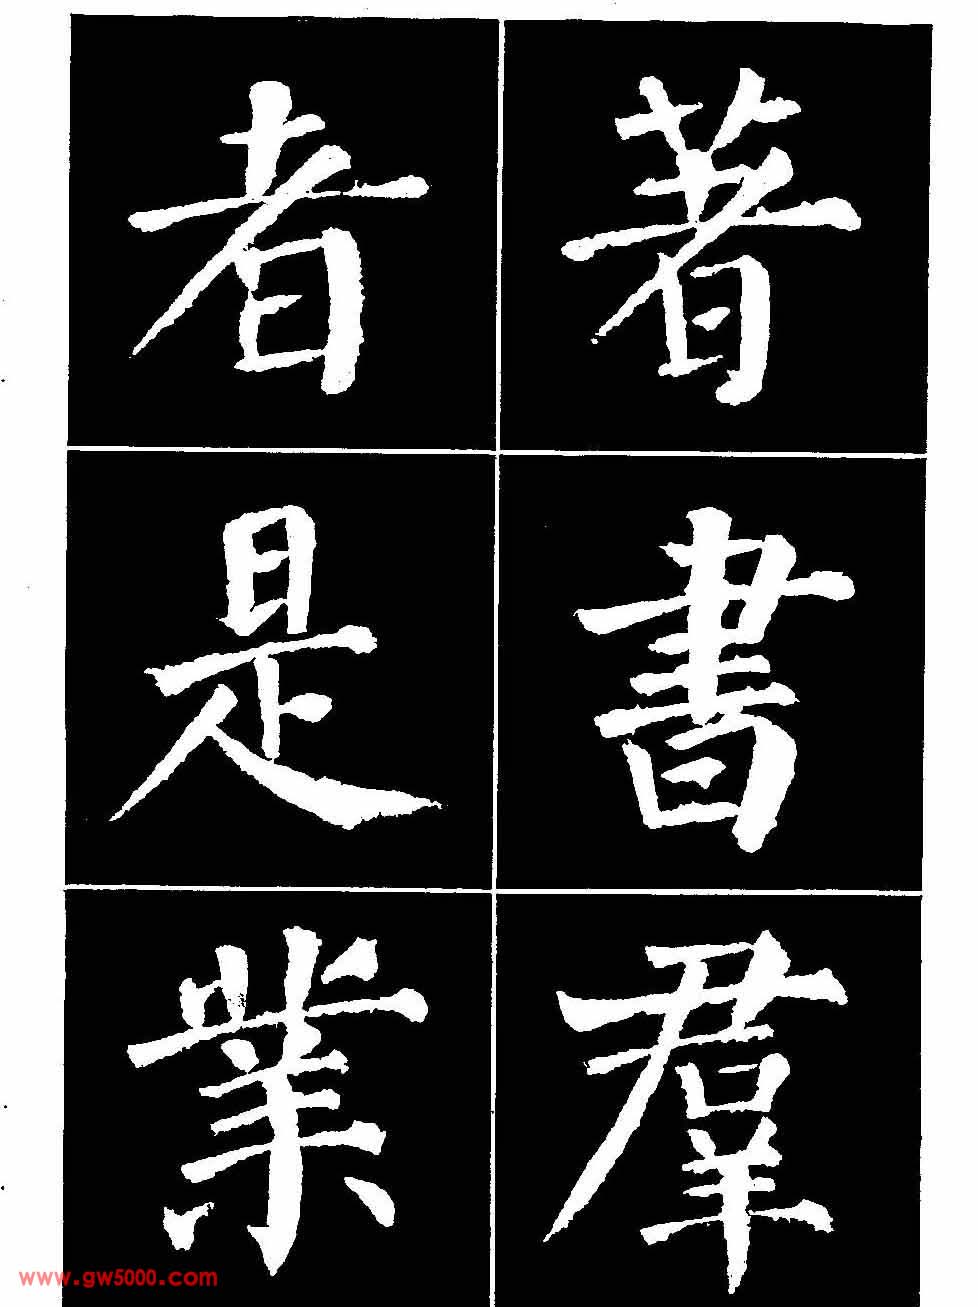 著書羣
者是業
www.gw5000.com